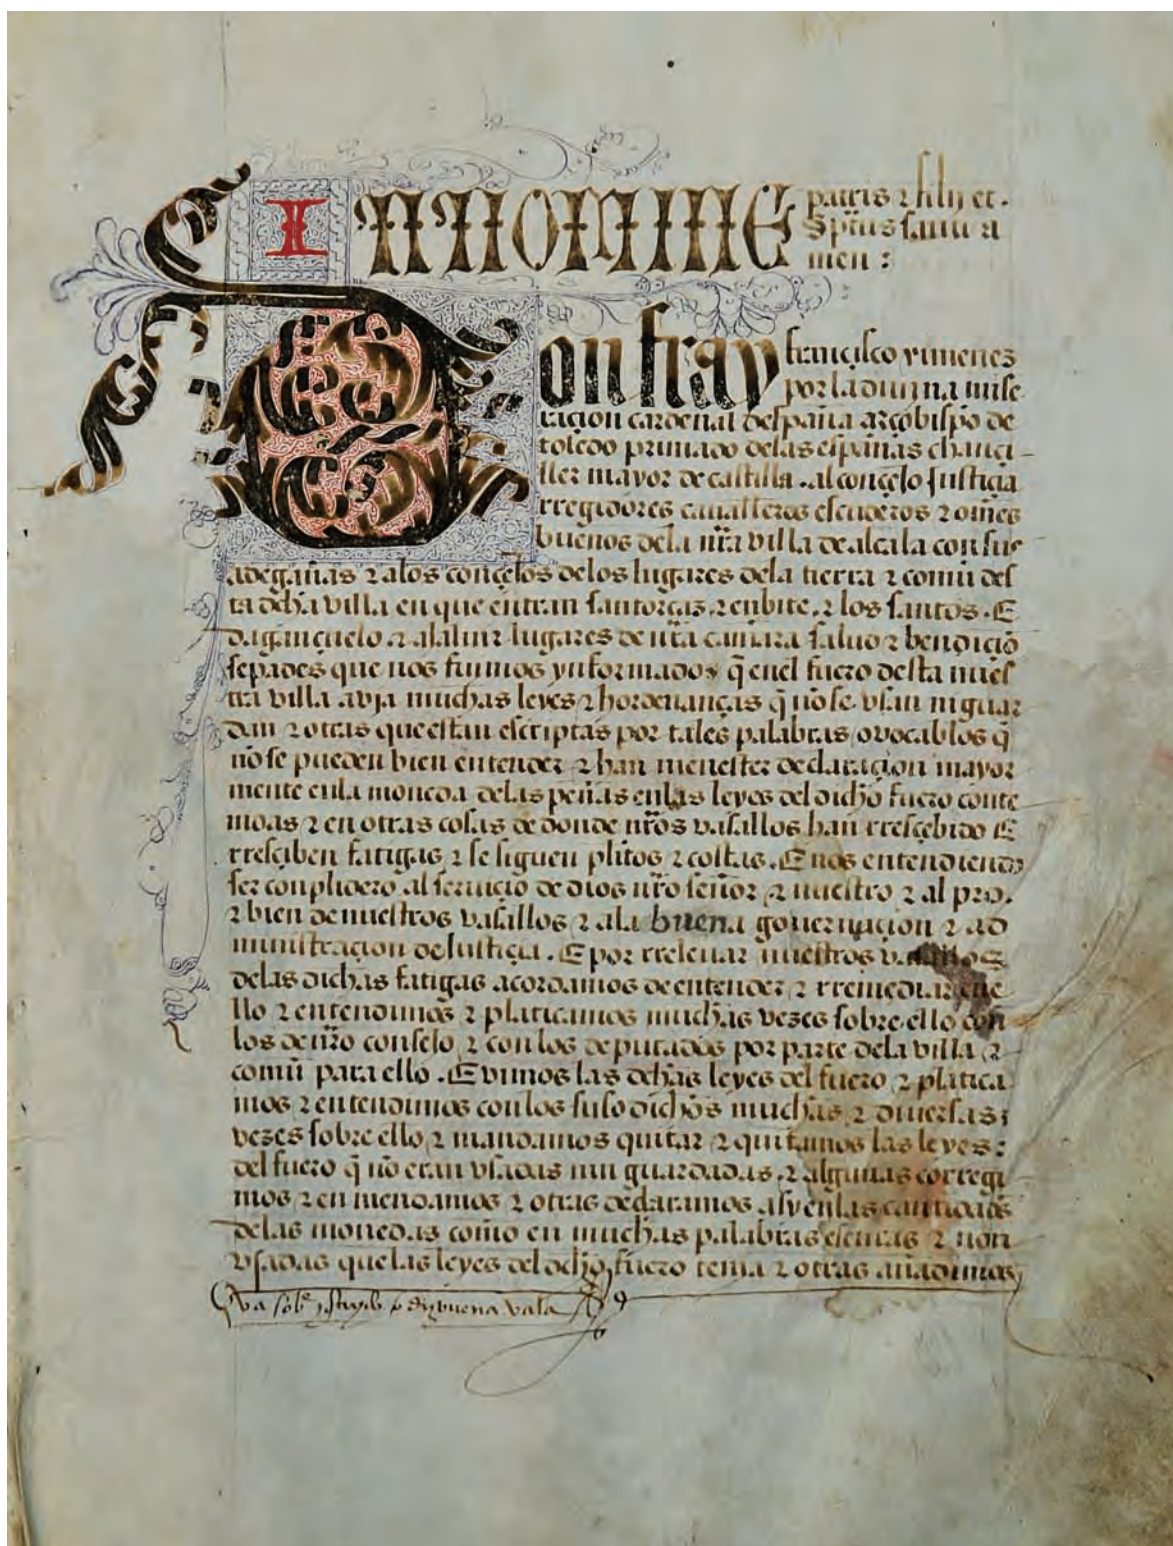 IN NOMINE patris ⁊ filij et.
Sp̃tus santi a
men :
Don fray françisco ximenes
por la diujna mise
raçion cardenal despaña arçobispo de
toledo primado delas españas chançi
ller mayor de castilla . al conçejo justiçia
rregidores caualleros escuderos ⁊ om̃es
buenos dela nr̃a villa de alcala con sus
adegañas ⁊ alos conçejos delos lugares dela tierra ⁊ comũ des
ta dc̃ha villa en que entran santorcaz ⁊ enbite ⁊ los santos . E
dagançuelo ⁊ alaluir lugares de nr̃a camara salud ⁊ bendiçiõ
sepades que nos fuimos ynformados q̃ enel fuero desta nues
tra villa avja muchas leyes ⁊ hordenanças q̃ nõ se vsan ni guar
dan ⁊ otras que estan escriptas por tales palabras o vocablos q̃
nõ se pueden bien entender ⁊ han menester declaraçion mayor
mente enla moneda delas penas enlas leyes del dicho fuero conte
nidas ⁊ en otras cosas de donde nr̃os vasallos han rresçebido E
rresçiben fatigas ⁊ se siguen plitos ⁊ costas . E nos entendiendo
ser conplidero al seruiçio de dios nr̃o señor ⁊ nuestro ⁊ al pro .
⁊ bien de nuestros vasallos ⁊ ala buena gouernaçion ⁊ ad
ministraçion de justiçia . E por rreleuar nuestros vasallos
delas dichas fatigas acordamos de entender ⁊ rremediar en e
llo ⁊ entendimos ⁊ platicamos muchas vezes sobre ello con
los de nr̃o consejo ⁊ con los deputados por parte dela villa ⁊
comũ para ello . E vimos las dc̃has leyes del fuero ⁊ platica
mos ⁊ entendimos con los suso dichos muchas ⁊ diuersas
vezes sobre ello ⁊ mandamos quitar ⁊ quitamos las leyes :
del fuero q̃ nõ eran vsadas nin guardadas ⁊ algunas corregi
mos ⁊ en mendamos ⁊ otras declaramos asy enlas cantidades
delas monedas como en muchas palabras escuras ⁊ non
vsadas que las leyes del dc̃ho fuero tenia ⁊ otras añadimos
va sobre diz buena vala